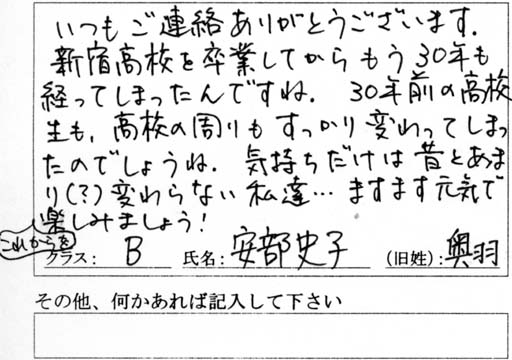 いつもご連絡ありがとうございます.
新宿高校を卒業してからもう30年も
経ってしまったんですね. 30年前の高校
生も, 高校の周りもすっかり変わってしまっ
たのでしょうね. 気持ちだけは昔とあま
り(?)変わらない私達… ますます元気で
これからを楽しみましょう!
クラス: B 氏名: 安部史子 (旧姓): 奥羽
その他、何かあれば記入して下さい